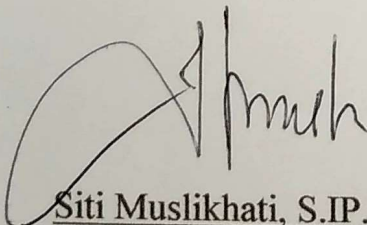 Siti Muslikhati, S.IP.